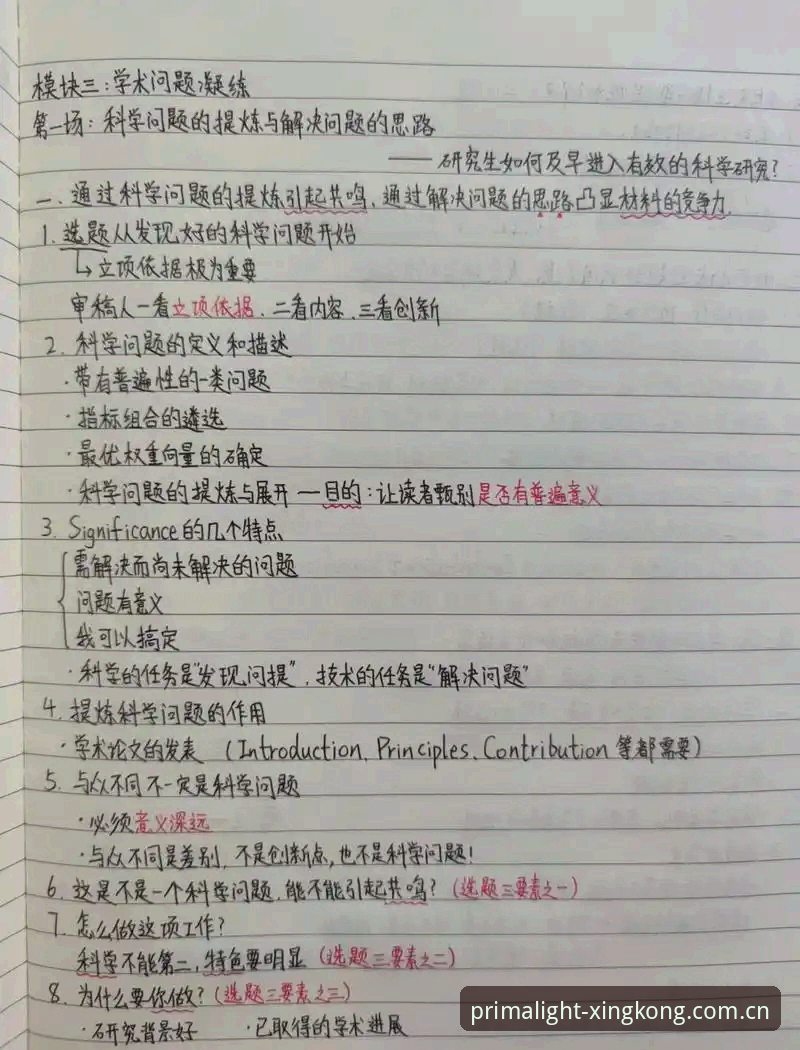 模块三:学术问题凝练
第一场:科学问题的提炼与解决问题的思路
——研究生如何及早进入有效的科学研究?
一、通过科学问题的提炼引起共鸣,通过解决问题的思路凸显材料的竞争力
1. 选题从发现好的科学问题开始
↳立项依据极为重要
审稿人一看立项依据、二看内容、三看创新
2. 科学问题的定义和描述
·带有普遍性的一类问题
·指标组合的遴选
·最优权重向量的确定
·科学问题的提炼与展开一目的:让读者甄别是否有普遍意义
3. Significance的几个特点
需解决而尚未解决的问题
问题有意义
我可以搞定
·科学的任务是"发现问提",技术的任务是"解决问题"
4. 提炼科学问题的作用
·学术论文的发表 (Introduction、Principles、Contribution等都需要)
5. 与众不同不一定是科学问题
·必须意义深远
·与众不同是差别,不是创新点,也不是科学问题!
6. 这是不是一个科学问题,能不能引起共鸣?(选题三要素之一)
7. 怎么做这项工作?
科学不能第二,特色要明显(选题三要素之二)
8. 为什么要你做?(选题三要素之三)
·研究背景好 ·已取得的学术进展
primalight-xingkong.com.cn